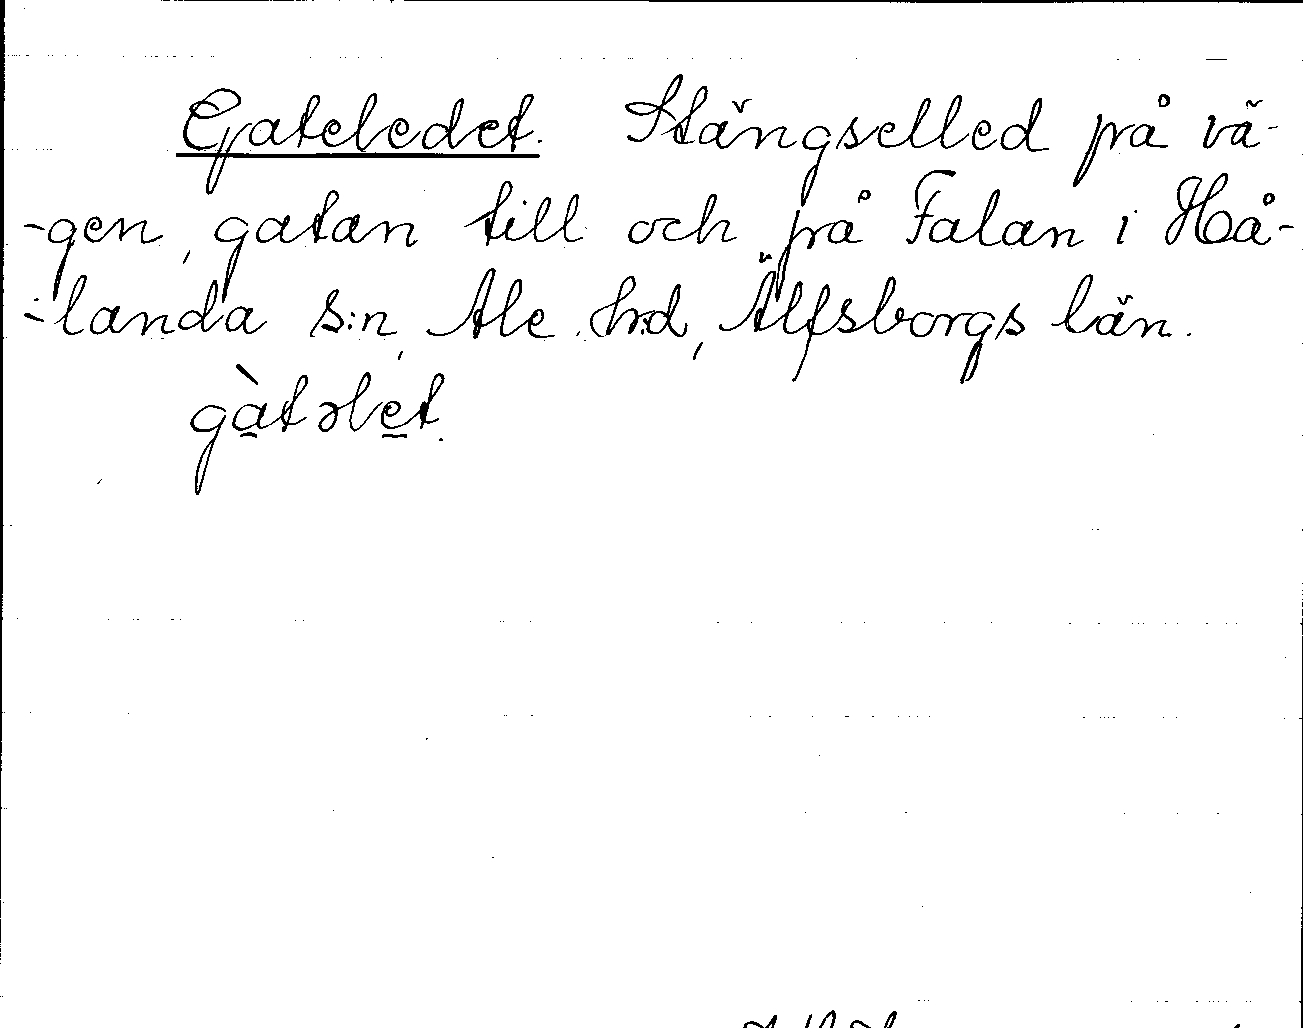 Gateledet. Stängselled på vä-
-gen, gatan till och på Falan i Hå-
-landa s:n, Ale hd, Älfsborgs län.
gàtəlet.